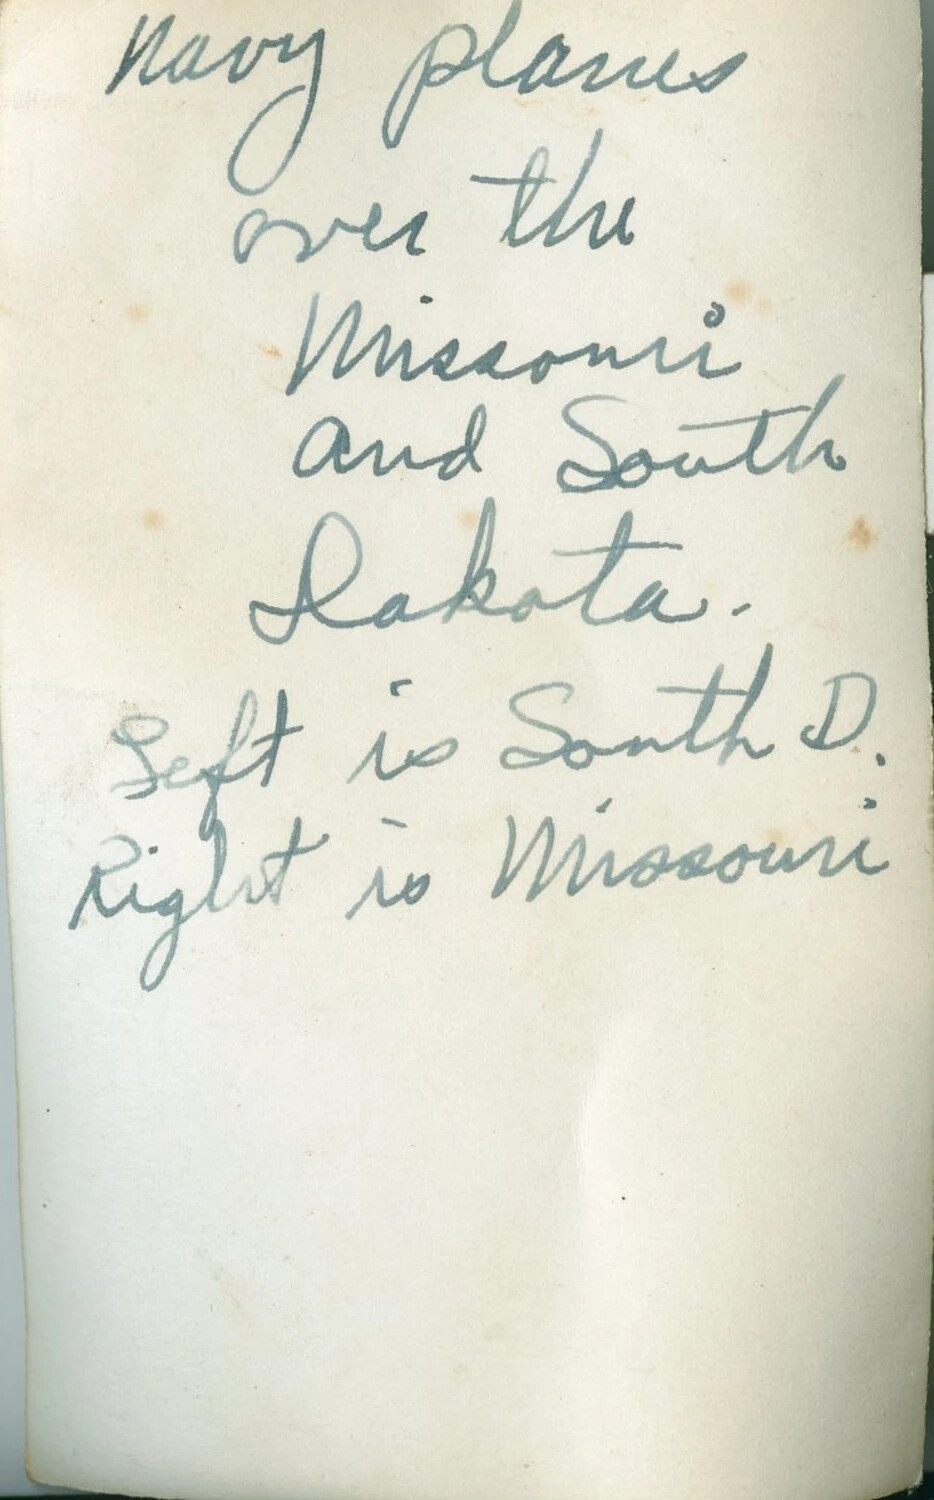 Navy planes
over the
Missouri
and South
Dakota.
Left is South D.
Right is Missouri